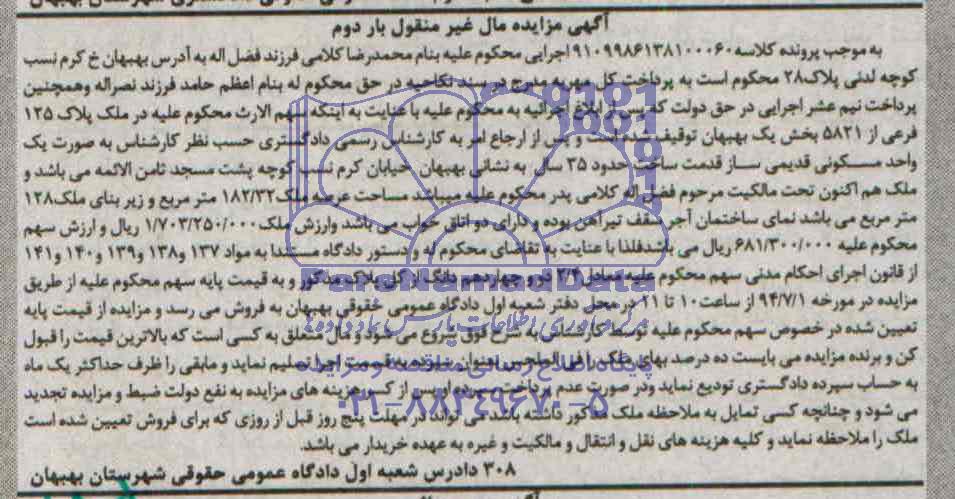 آگهی مزایده مال غیر منقول بار دوم
به موجب پرونده کلاسه ۹۱۰۹۹۸۶۱۳۸۱۰۰۰۶۰ اجرایی محکوم علیه بنام محمدرضا کلامی فرزند فضل اله به آدرس بهبهان خ کرم نسب
کوچه لدنی پلاک۲۸ محکوم است به پرداخت کل مهریه مندرج در سند نکاحیه در حق محکوم له بنام اعظم حامد فرزند نصراله وهمچنین
پرداخت نیم عشر اجرایی در حق دولت که پس از ابلاغ اجرائیه به محکوم علیه با عنایت به اینکه سهم الارث محکوم علیه در ملک پلاک ۱۲۵
فرعی از ۵۸۲۱ بخش یک بهبهان توقیف شده است و پس از ارجاع امر به کارشناس رسمی دادگستری حسب نظر کارشناس به صورت یک
واحد مسکونی قدیمی ساز قدمت ساخت حدود ۳۵ سال به نشانی بهبهان خیابان کرم نسب کوچه پشت مسجد ثامن الائمه می باشد و
ملک هم اکنون تحت مالکیت مرحوم فضل اله کلامی پدر محکوم علیه میباشد مساحت عرصه ملک۱۸۲/۳۲ متر مربع و زیر بنای ملک۱۲۸
متر مربع می باشد نمای ساختمان آجر وسقف تیرآهن بوده و دارای دو اتاق خواب می باشد وارزش ملک۱/۷۰۳/۲۵۰/۰۰۰ ریال و ارزش سهم
محکوم علیه ۶۸۱/۳۰۰/۰۰۰ ریال می باشدفلذا با عنایت به تقاضای محکوم له و دستور دادگاه مستندا به مواد ۱۳۷ و۱۳۸ و۱۳۹ و۱۴۰ و۱۴۱
از قانون اجرای احکام مدنی سهم محکوم علیه معادل۲/۴ دو و چهاردهم دانگ از کل پلاک مذکور و به قیمت پایه سهم محکوم علیه از طریق
مزایده در مورخه ۹۴/۷/۱ از ساعت۱۰ تا ۱۱ در محل دفتر شعبه اول دادگاه عمومی حقوقی بهبهان به فروش می رسد و مزایده از قیمت پایه
تعیین شده در خصوص سهم محکوم علیه توسط کارشناس به شرح فوق شروع می شود و مال متعلق به کسی است که بالاترین قیمت را قبول
کن و برنده مزایده می بایست ده درصد بهای ملک را فی المجلس بعنوان سپرده به قسمت اجرا تسلیم نماید و مابقی را ظرف حداکثر یک ماه
به حساب سپرده دادگستری تودیع نماید ودر صورت عدم پرداخت سپرده او پس از کسر هزینه های مزایده به نفع دولت ضبط و مزایده تجدید
می شود و چنانچه کسی تمایل به ملاحظه ملک مذکور داشته باشد می تواند در مهلت پنج روز قبل از روزی که برای فروش تعیین شده است
ملک را ملاحظه نماید و کلیه هزینه های نقل و انتقال و مالکیت و غیره به عهده خریدار می باشد.
۳۰۸ دادرس شعبه اول دادگاه عمومی حقوقی شهرستان بهبهان
ParsNamadData
پایگاه اطلاع رسانی مناقصه و مزایده
۰۲۱-۸۸۳۴۹۶۷۰-۵